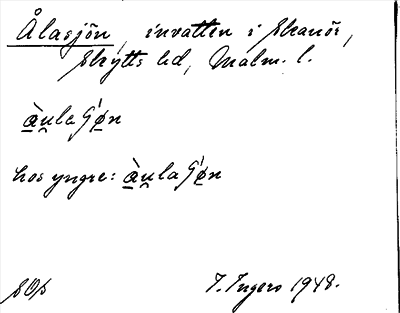 Ålasjön, invatten i Skanör,
Skytts hd, Malm. l.
àu̯laʃǿn
hos yngre: àu̯laʃǿn
SOÞ
I. Ingers 1948.